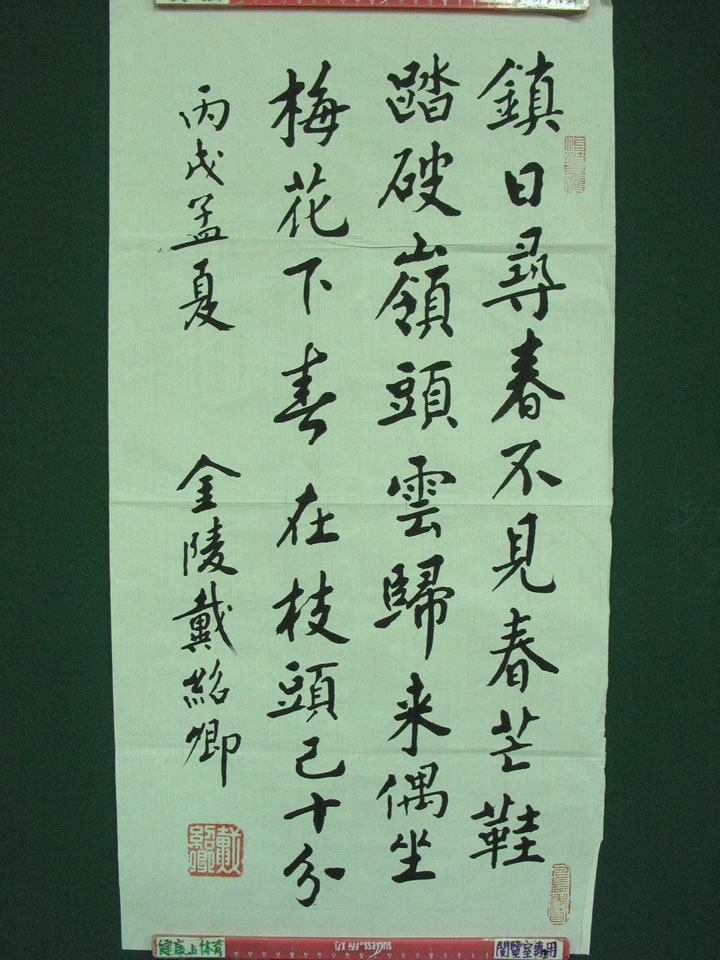 鎮日尋春不見春芒鞋
踏破嶺頭雲歸来偶坐
梅花下春在枝頭已十分
丙戌孟夏
金陵戴紹卿
戴紹卿
健康上体育
SUCCESS
閱覽室專用